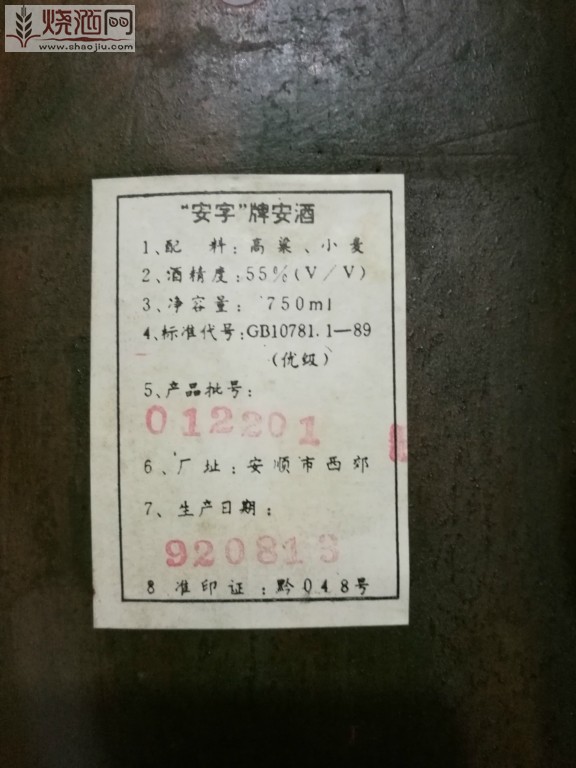 烧酒网
www.shaojiu.com
“安字”牌安酒
1、配 料：高粱、小麦
2、酒精度：55%(V/V)
3、净容量：750ml
4、标准代号:GB10781.1—89
(优级)
5、产品批号：
012201
6、厂址：安顺市西郊
7、生产日期：
920813
8 准印证：黔048号